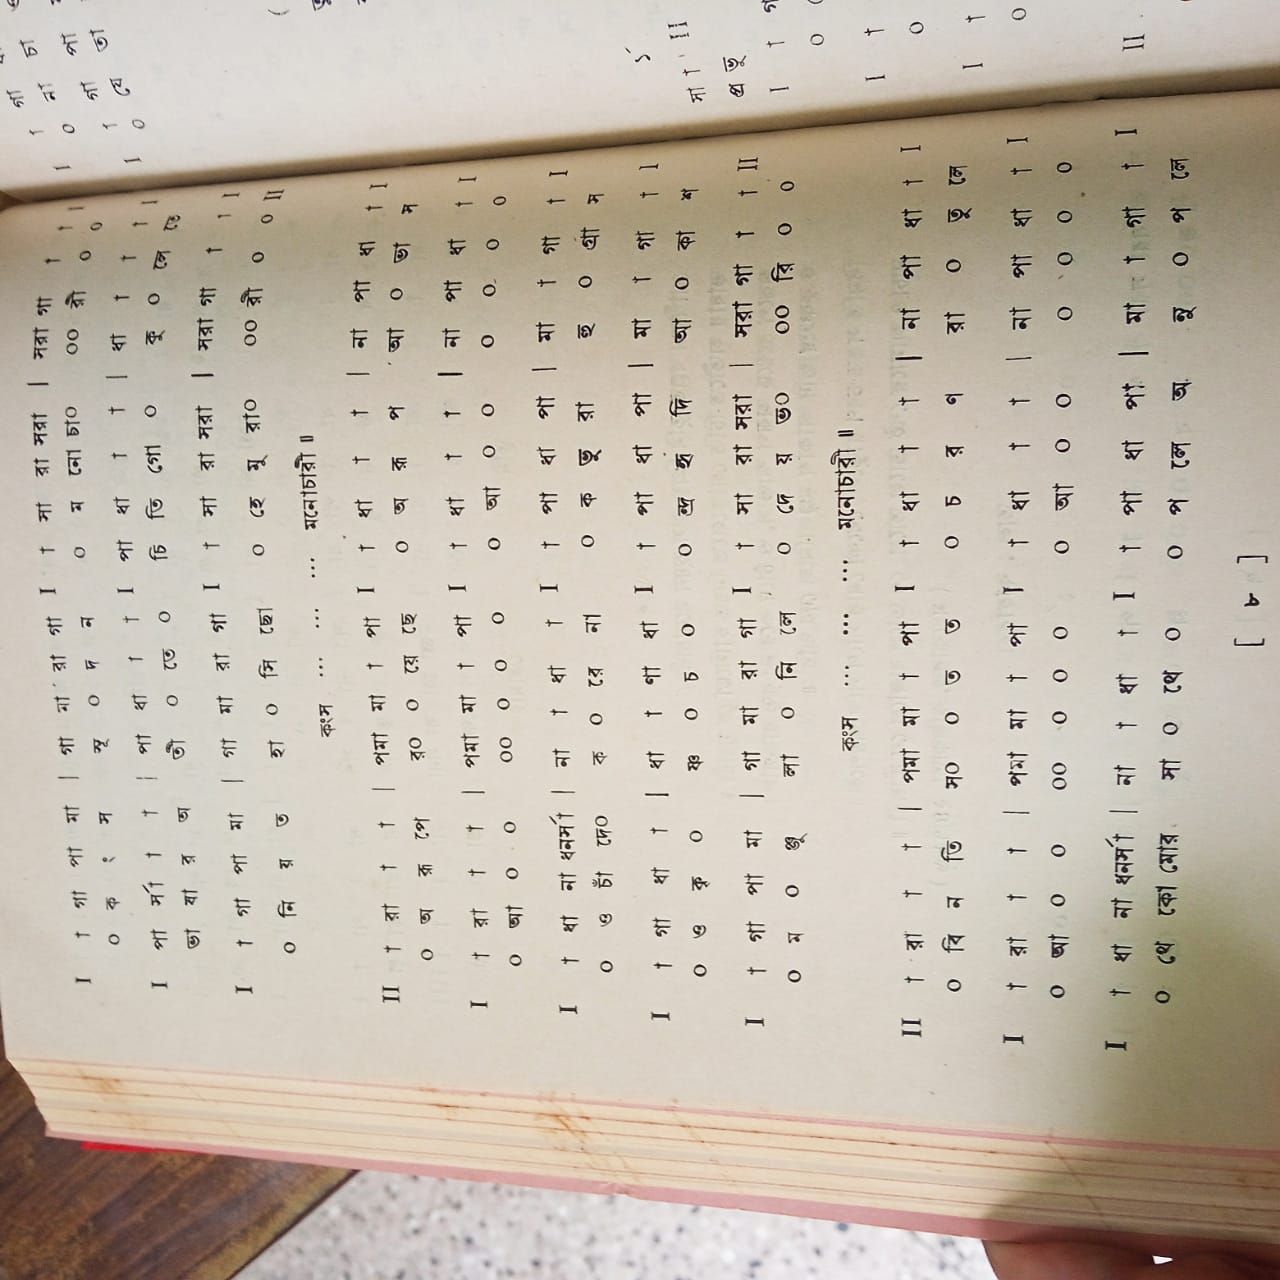 I † গা পা মা | গা মা রা গা I † সা রা সরা | সরা গা † † I
০ ক ং স সূ ০ দ ন ০ ম নো চা০ ০০ রী ০ ০
I পা র্সা † † | পা ধা † † I পা ধা † † | ধা † † † I
ভা বা র অ তী ০ তে ০ চি তি গো ০ কু ০ পে তে
I † গা পা মা | গা মা রা গা I † সা রা সরা | সরা গা † † I
০ নি য় ত হা ০ সি ছো ০ হে মু রা০ ০০ রী ০ ০ II
কংস ... ... ... মনোচারী ॥
II † রা † † | পমা মা † পা I † ধা † † | না পা ধা † I
০ অ রূ পে র০ ০ য়ে ছে ০ অ রূ প আ ০ ভা স
I † রা † † | পমা মা † পা I † ধা † † | না পা ধা † I
০ আ ০ ০ ০০ ০ ০ ০ ০ আ ০ ০ ০ ০ ০ ০
I † ধা না ধনর্সা | না † ধা † I † পা ধা পা | মা † গা † I
০ ও চাঁ দে০ ক ০ রে না ০ ক ভু রা হু ০ গ্রা স
I † গা ধা † | ধা † ণা ধা I † পা ধা পা | মা † গা † I
০ ও কৃ ০ ষ্ণ ০ চ ০ ০ ন্দ্র হৃ দি আ ০ কা শ
I † গা পা মা | গা মা রা গা I † সা রা সরা | সরা গা † † II
০ ম ০ ঞ্জু লা ০ নি লে ০ দে য় ভ০ ০০ রি ০ ০
কংস ... ... ... মনোচারী ॥
II † রা † † | পমা মা † পা I † ধা † † | না পা ধা † I
০ বি ন তি স০ ০ ত ত ০ চ র ণ রা ০ তু লে
I † রা † † | পমা মা † পা I † ধা † † | না পা ধা † I
০ আ ০ ০ ০০ ০ ০ ০ ০ আ ০ ০ ০ ০ ০ ০
I † ধা না ধনর্সা | না † ধা † I † পা ধা পা | মা † গা † I
০ থে কো মোর সা ০ থে ০ ০ প লে অ নু ০ প লে
[ ৮ ]